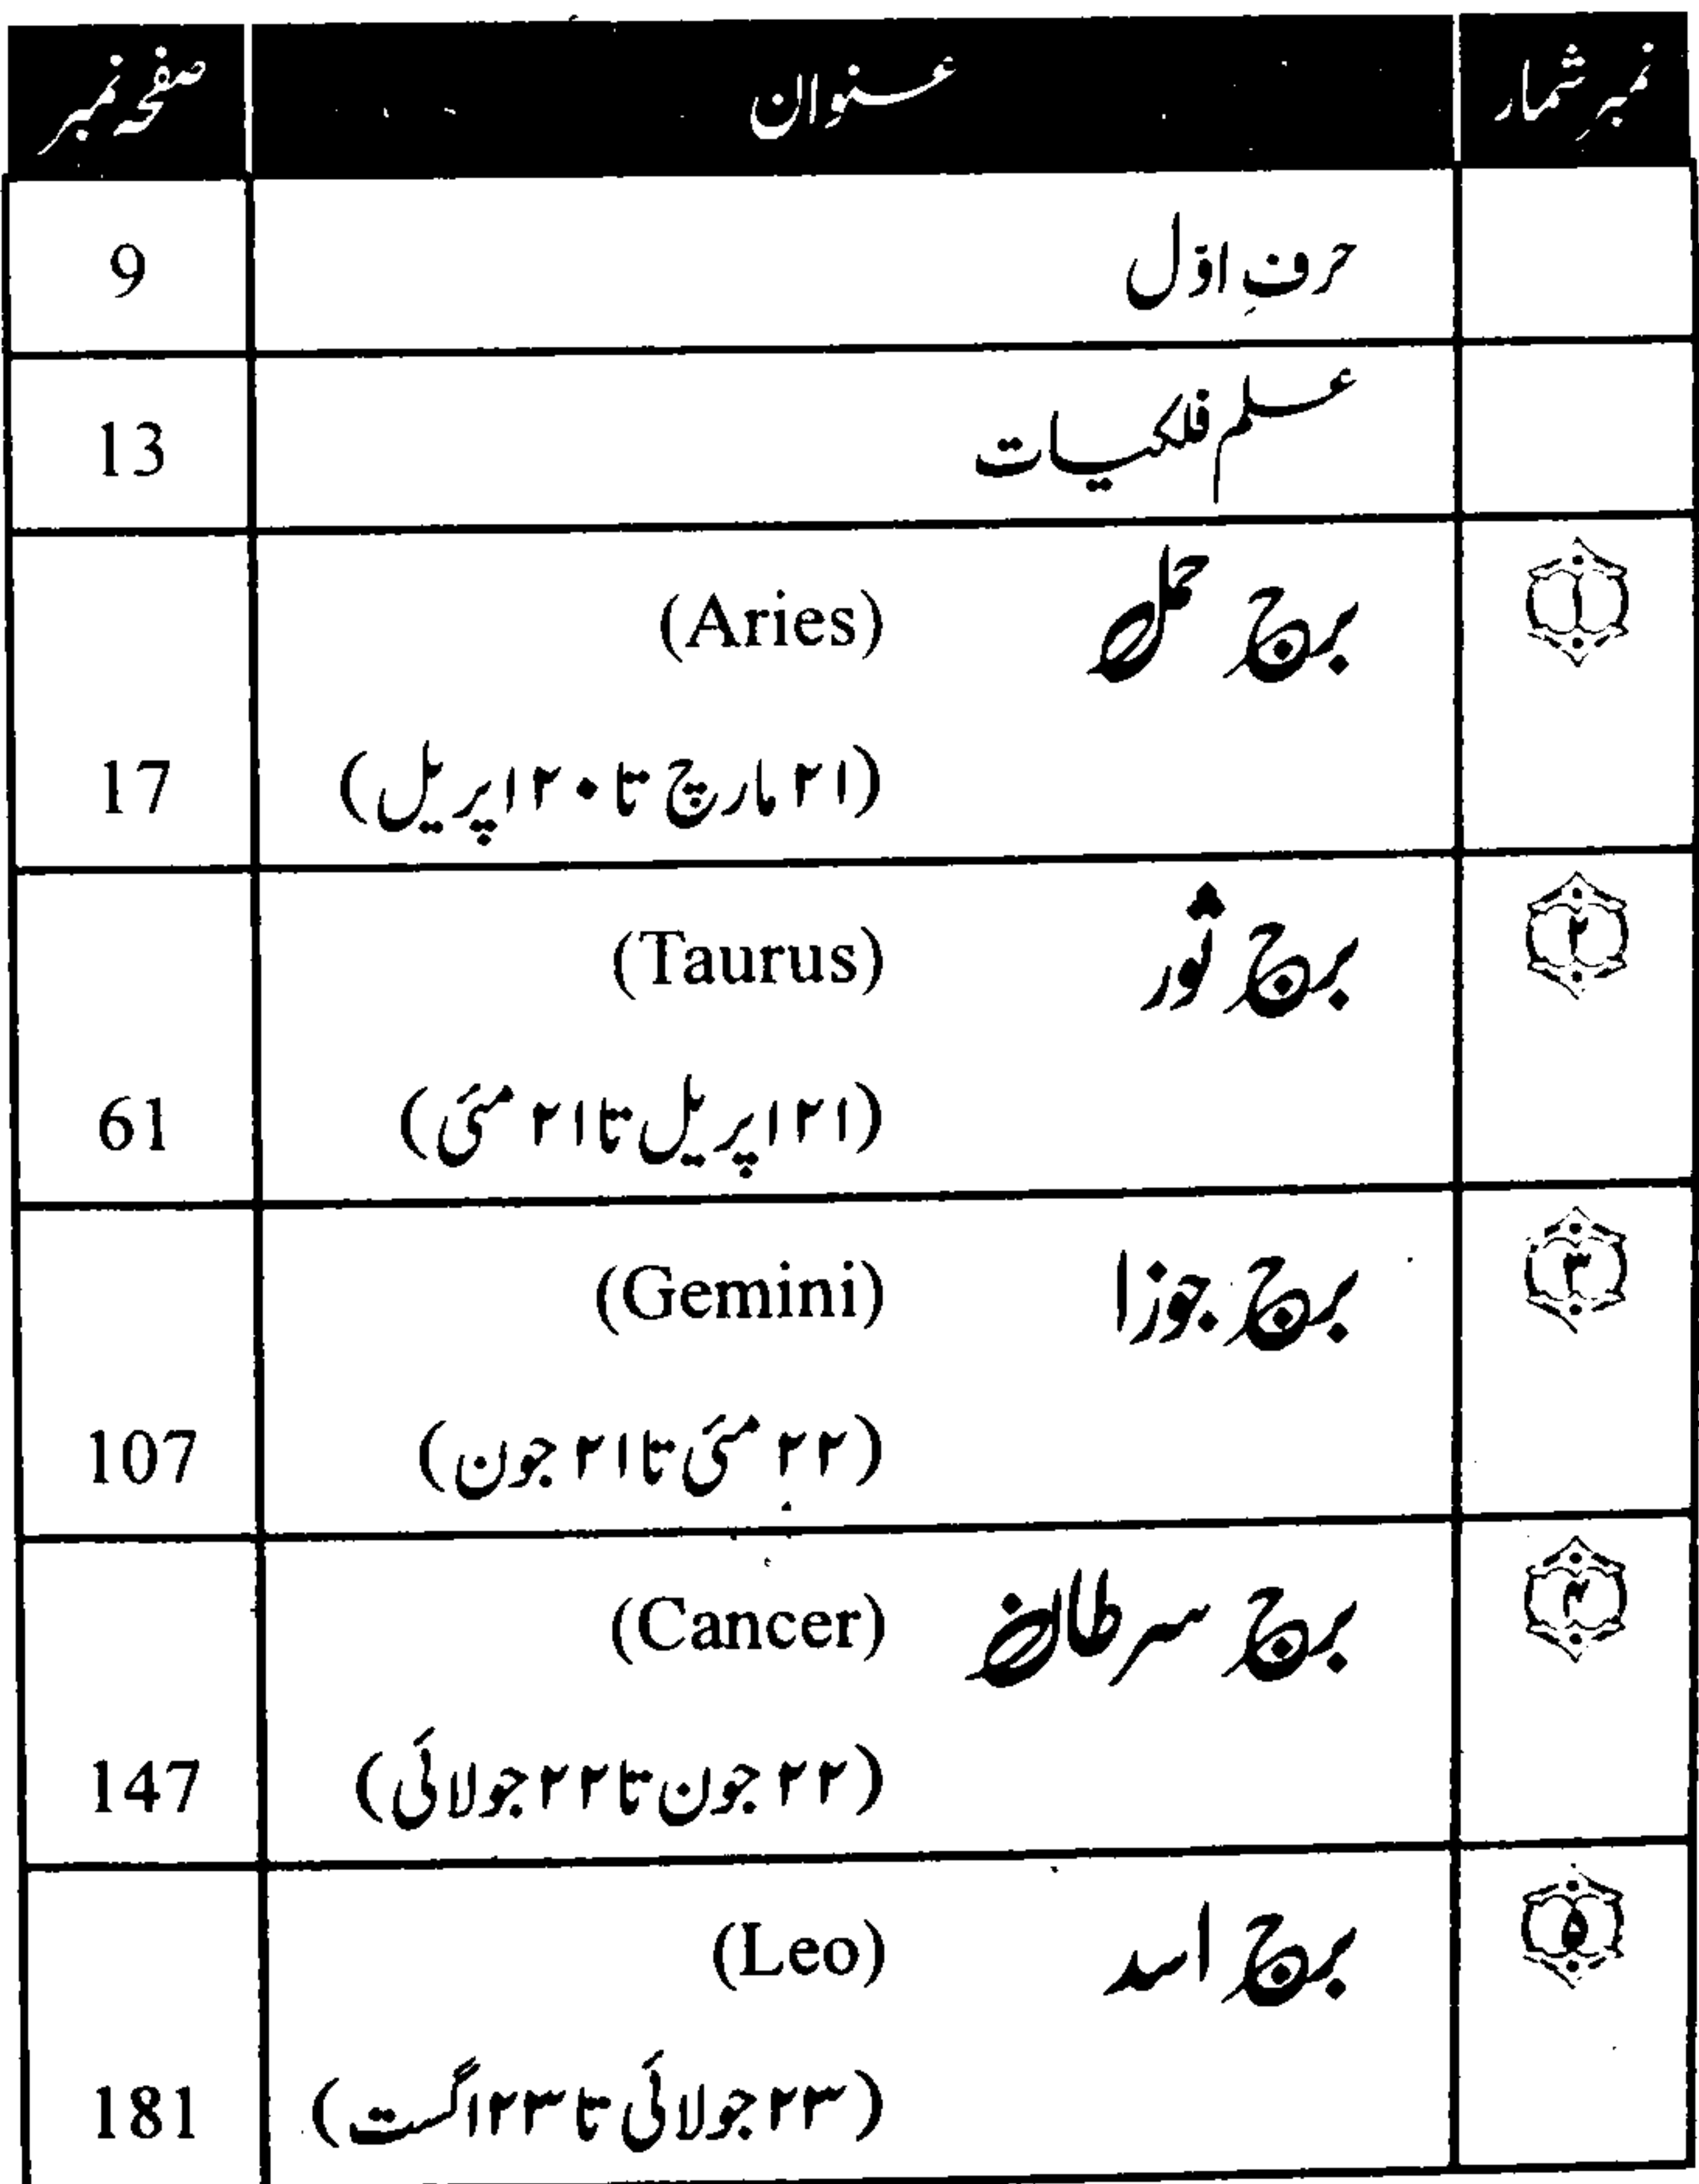 نمبر شمار عنوان صفحہ نمبر
حرفِ اوّل 9
علم فلکیات 13
۱ برج حمل (Aries)
(۲۱ مارچ تا ۲۰ اپریل) 17
۲ برج ثور (Taurus)
(۲۱ اپریل تا ۲۱ مئی) 61
۳ برج جوزا (Gemini)
(۲۲ مئی تا ۲۱ جون) 107
۴ برج سرطان (Cancer)
(۲۲ جون تا ۲۲ جولائی) 147
۵ برج اسد (Leo)
(۲۳ جولائی تا ۲۳ اگست) 181